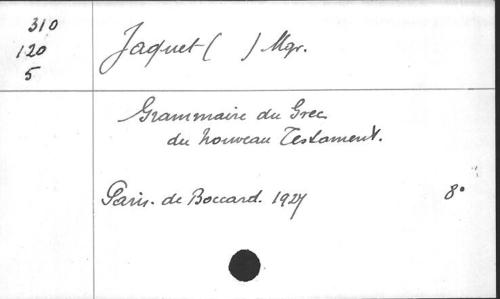 310
120
5
Jaquet ( ) Mgr.
Grammaire du Grec
du Nouveau Testament.
Paris. de Boccard. 1927
8°